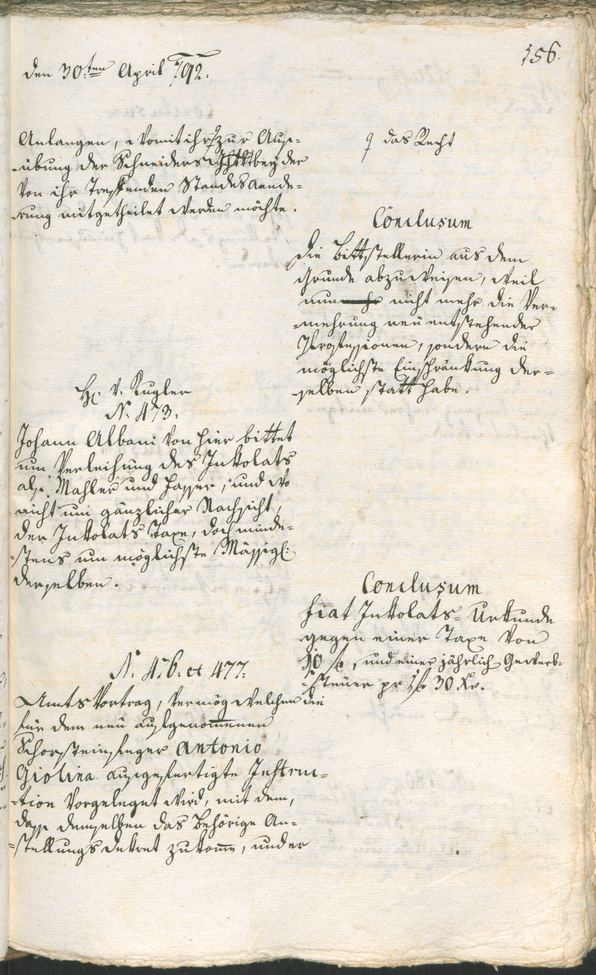 156.
den 30ten April 792.
Anlangen, womit ihr zur Aus-
-übung der Schneiders bey der
von ihr treffenden Standesaende-
-rung mitgetheilet werden möchte.
das Recht
Conclusum
die Bittstellerin aus dem
Grunde abzuweisen, weil
nun nicht mehr die Ver-
-mehrung neu entstehender
Professionen, sondern die
möglichste Einschränkung der-
selben statt habe.
H: v. Kugler
N. 473.
Johann Albani von hier bittet
um Verleihung des Inkolats
als Mahler und und wo
nicht um gänzlicher Nachsicht,
der Inkolats Taxe, doch minde-
-stens um möglichste Mässig:
derselben.
Conclusum
fiat Inkolats-Urkunde
gegen einer Taxe von
10 f, und einer jährlich Gewerb-
steuer pr 1 f 30 Xr.
N. 476. et 477.
Amts Vortrag, vermög welchem die
für dem neu aufgenommenen
Schorsteinfeger Antonio
Giolina ausgefertigte Instruc-
-tion vorgeleget wird, mit dem,
dass demselben das behörige An-
-stellungs Dekret zukomme, und er